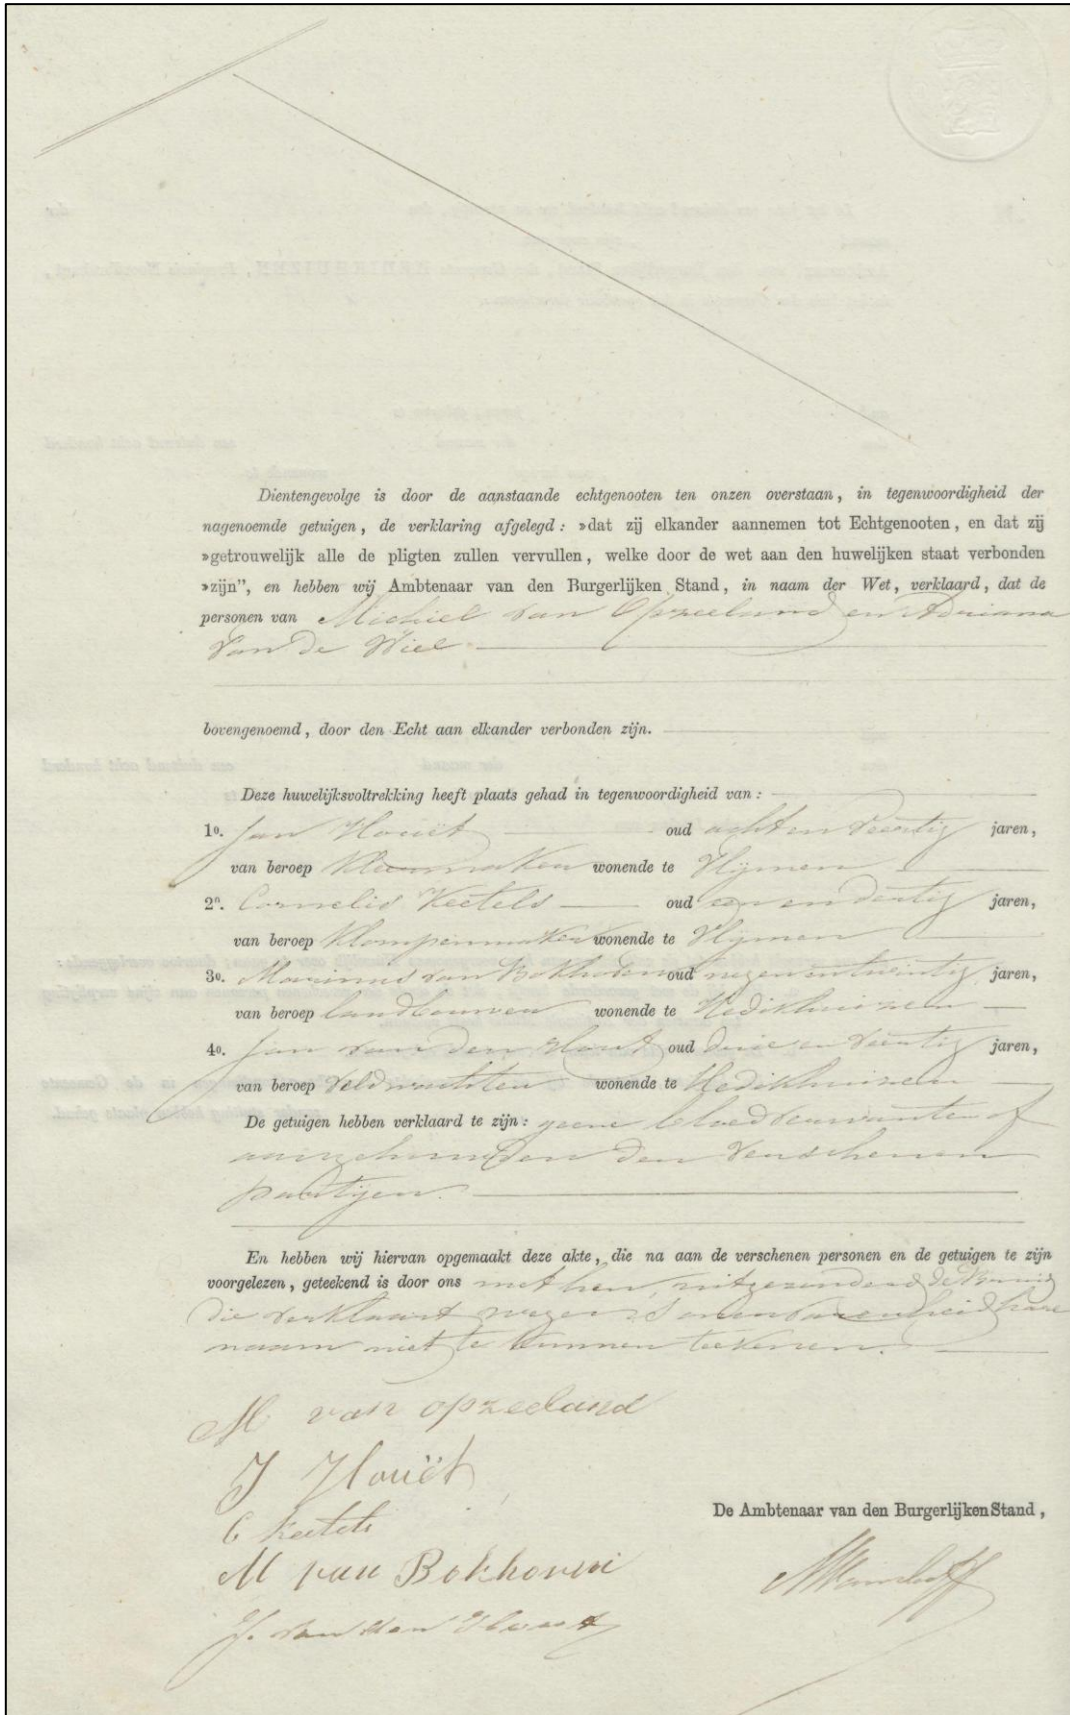 Dientengevolge is door de aanstaande echtgenooten ten onzen overstaan, in tegenwoordigheid der
nagenoemde getuigen, de verklaring afgelegd: »dat zij elkander aannemen tot Echtgenooten, en dat zij
»getrouwelijk alle de pligten zullen vervullen, welke door de wet aan den huwelijken staat verbonden
»zijn", en hebben wij Ambtenaar van den Burgerlijken Stand, in naam der Wet, verklaard, dat de
personen van Michiel van Opzeeland en Adriana
van de Wiel
bovengenoemd, door den Echt aan elkander verbonden zijn.
Deze huwelijksvoltrekking heeft plaats gehad in tegenwoordigheid van:
1o. Jan Houët oud acht en veertig jaren,
van beroep wonende te Vlijmen
2o. Cornelis Keetels oud een en dertig jaren,
van beroep Klompenmaker wonende te Vlijmen
3o. Marinus van Bokhoven oud negen en twintig jaren,
van beroep landbouwer wonende te Hedikhuizen
4o. Jan van den Hout oud drie en veertig jaren,
van beroep veldwachter wonende te Hedikhuizen
De getuigen hebben verklaard te zijn: geene bloedverwanten of
aangehuwden der verschenen
partijen.
En hebben wij hiervan opgemaakt deze akte, die na aan de verschenen personen en de getuigen te zijn
voorgelezen, geteekend is door ons met hen, uitgezonderd de bruid
die verklaart wegens onervarenheid hare
naam niet te kunnen teekenen.
M van opzeeland
J Houët
C Keetels
De Ambtenaar van den Burgerlijken Stand,
M van Bokhoven
J. van den Hout